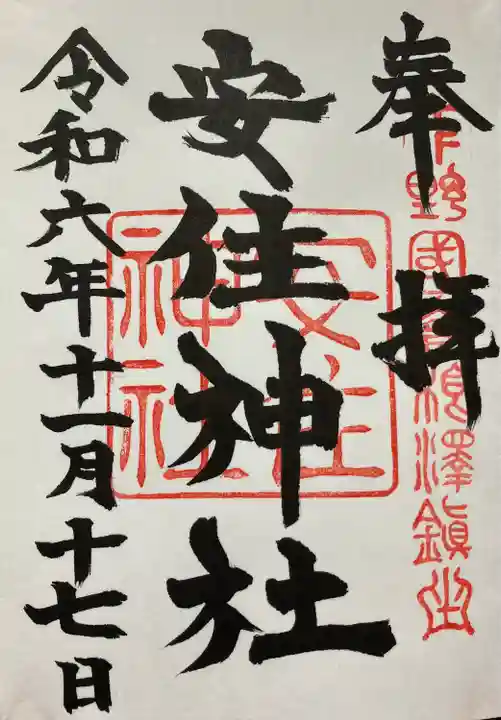 奉拝
下野國高根澤鎮
安住神社
安住
神社
令和六年十一月十七日